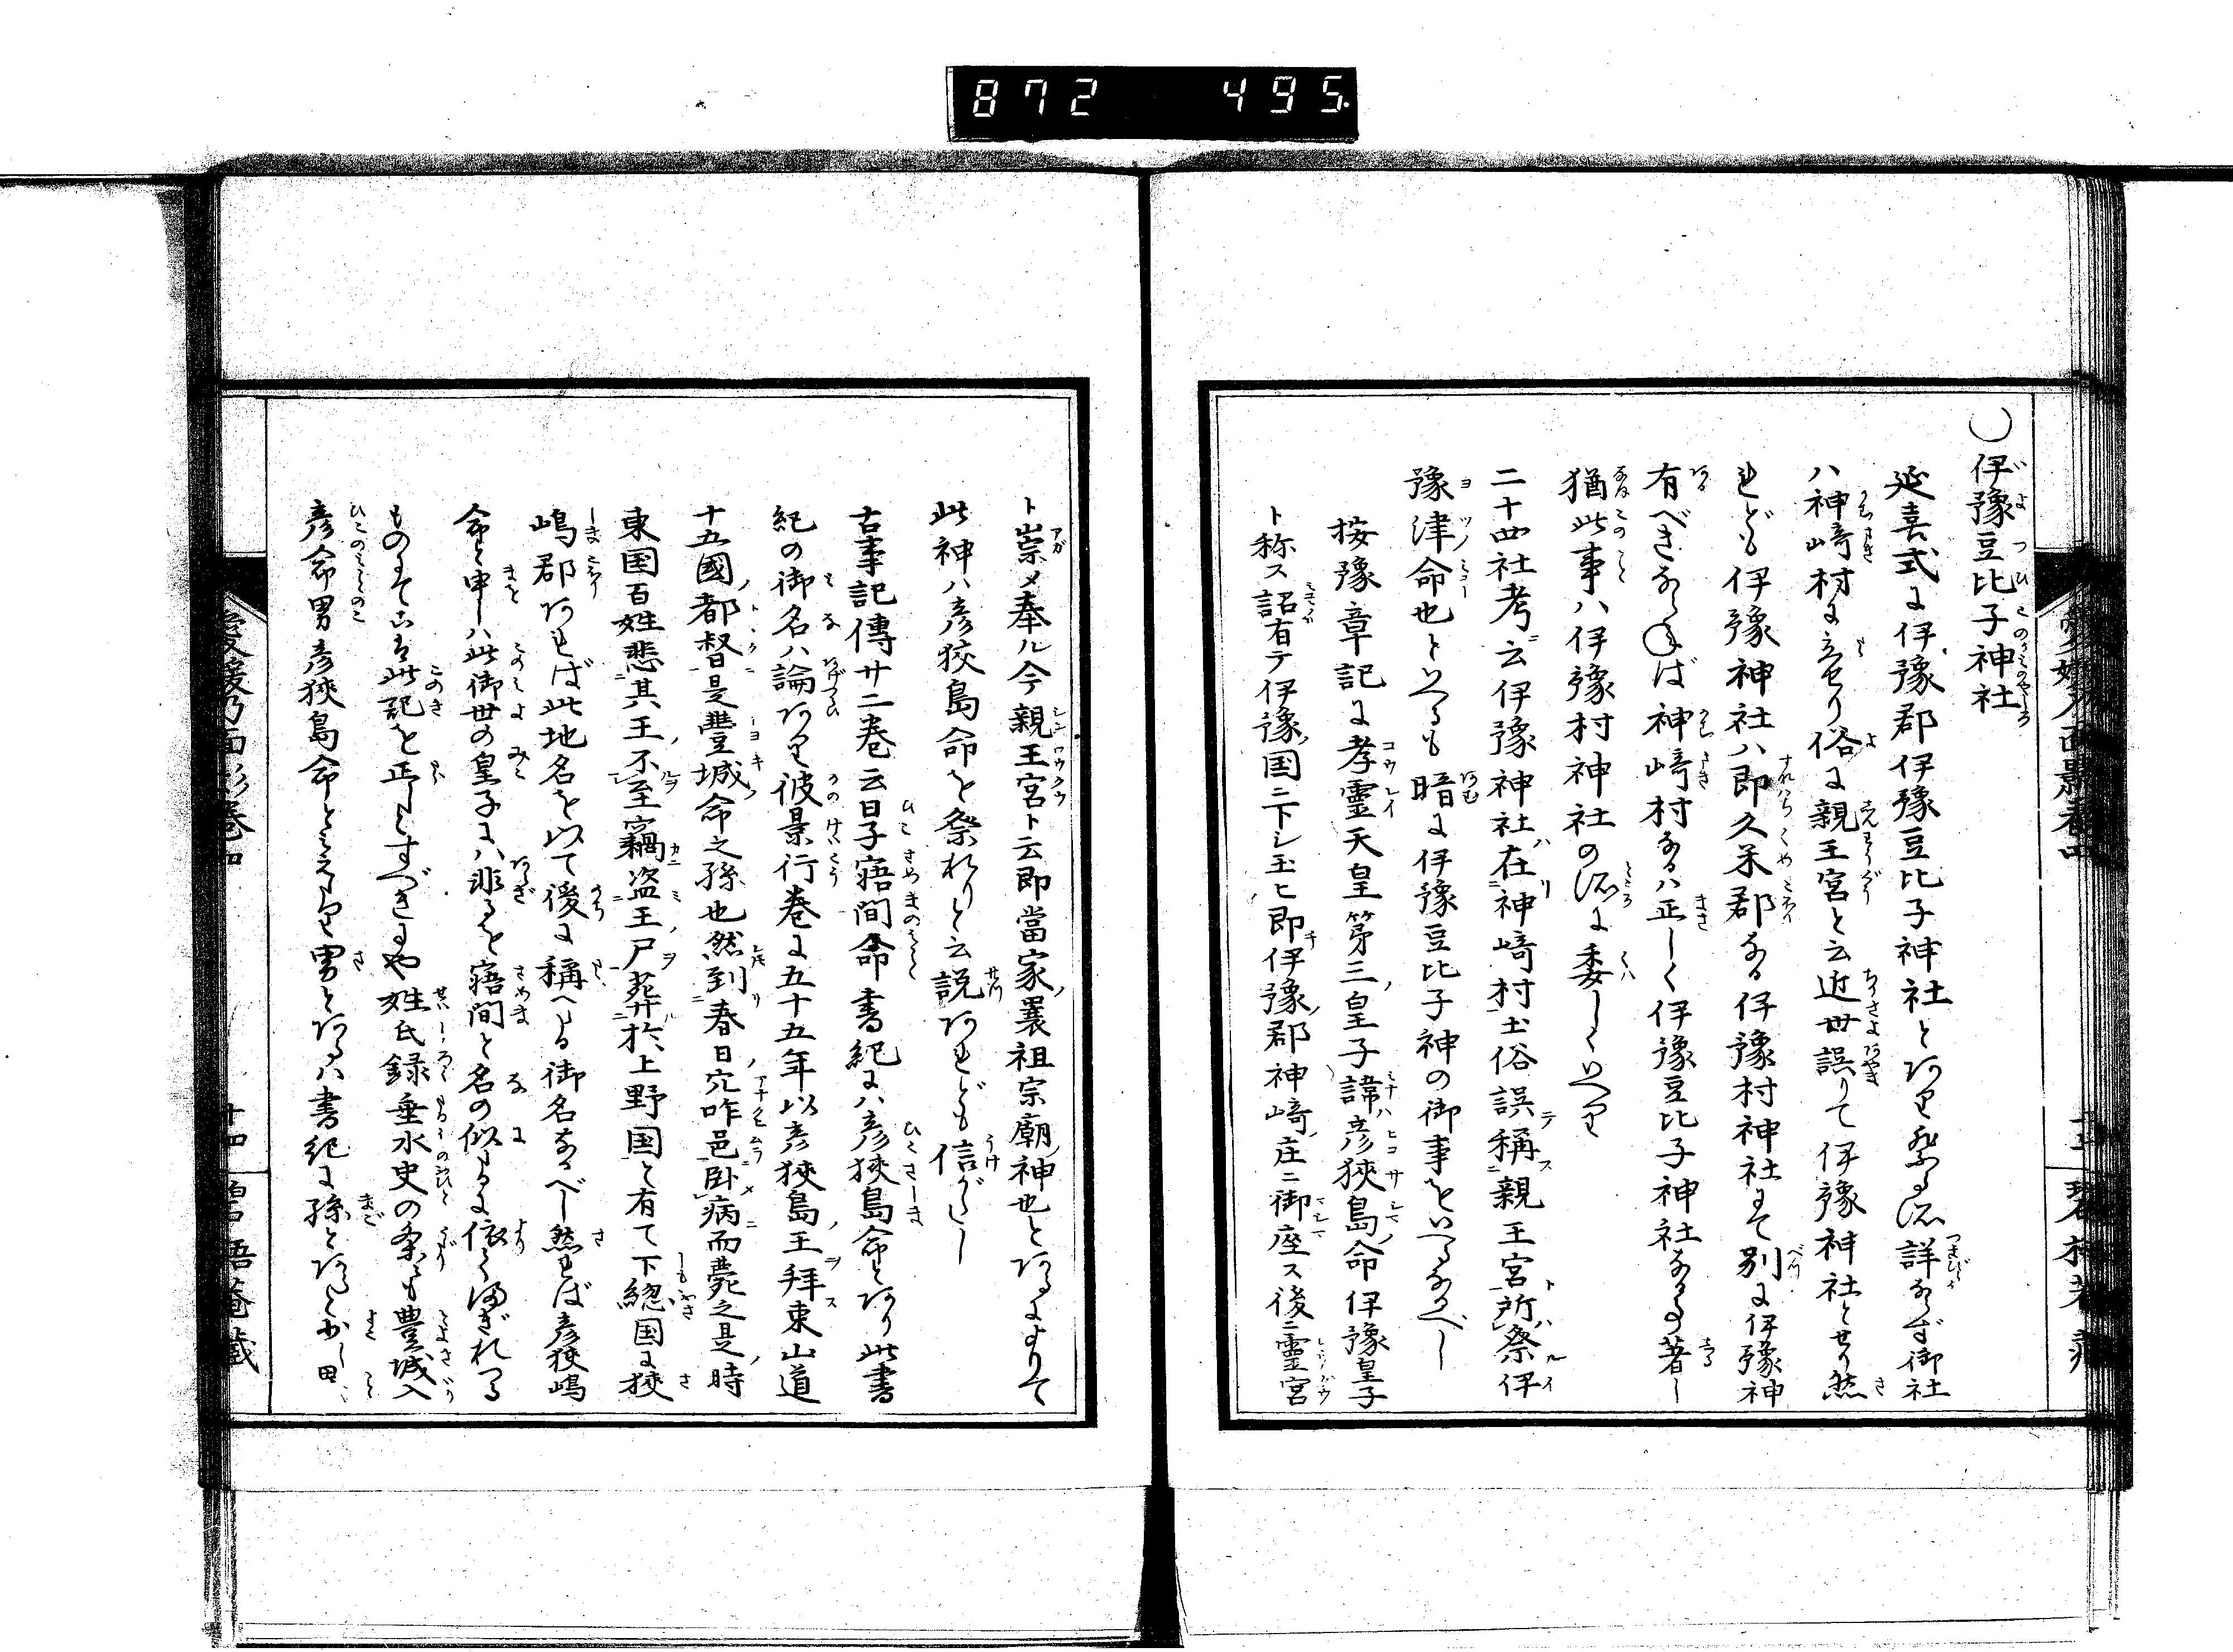 872 495.
○伊豫豆比子神社
延喜式に伊豫郡伊豫豆比子神社とあり祭る所詳ならず御社
ハ神﨑村に立せり俗に親王宮と云近世誤りて伊豫神社とせり然
れども伊豫神社ハ即久米郡なる伊豫村神社にて別に伊豫神
有べきならねば神﨑村なるハ正しく伊豫豆比子神社なる事著し
猶此事ハ伊豫村神社の所に委しくいへり
二十四社考ニ云伊豫神社ハ在リ神﨑村ニ土俗誤テ稱ス親王宮ト所ハ祭ル伊
豫津命也といへるも暗に伊豫豆比子神の御事をいへるなるべし
按豫章記に孝靈天皇第三ノ皇子諱ハ彦狹島ノ命伊豫皇子
ト称ス詔有テ伊豫ノ国ニ下シ玉ヒ即チ伊豫ノ郡神﨑ノ庄ニ御座ス後ニ靈宮
ト崇メ奉ル今親王宮ト云即當家ノ曩祖宗廟ノ神也とあるによりて
此神ハ彦狹島命を祭れりと云説あれども信がたし
古事記傳廿二巻云日子寤間命書紀にハ彦狹島命とあり此書
紀の御名ハ論あり彼景行巻に五十五年以彦狹島ノ王ヲ拜ス東山道
十五國ノ都督ニ是豊城ノ命之孫也然到リ春日ノ穴咋邑ニ卧メ病ニ而薨之是ノ時
東国百姓悲其王ノ不ルヲ至竊ニ盗ミ王ノ尸ヲ葬於上野国と有て下緫国に狹
嶋郡あれば此地名を以て後に稱へる御名なるべし然れば彦狹嶋
命と申しハ此御世の皇子にハ非るを寤間と名の似たるに依てまぎれつる
ものにてこは此記を正しとすべきにや姓氏録垂水史の条にも豊城入
彦命男彦狹島命とみえたり男とあるハ書紀に孫とあると少し